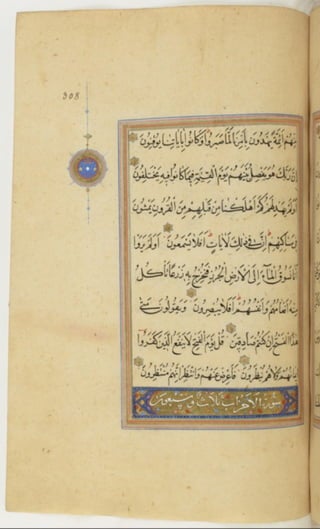 308
منهم ائمة يهدون بأمرنا لما صبروا وكانوا باياتنا يوقنون
ان ربك هو يفصل بينهم يوم القيمة فيما كانوا فيه يختلفون
اولم يهد لهم كم اهلكنا من قبلهم من القرون يمشون
فى مساكنهم ان فى ذلك لايات افلا يسمعون اولم يروا
انا نسوق المآء الى الارض الجرز فنخرج به زرعا تأكل
منه انعامهم وانفسهم افلا يبصرون ويقولون متى
هذا الفتح ان كنتم صادقين قل يوم الفتح لا ينفع الذين كفروا
ايمانهم ولا هم ينظرون فاعرض عنهم وانتظر انهم منتظرون
سورة الاحزاب ثلاث وسبعون